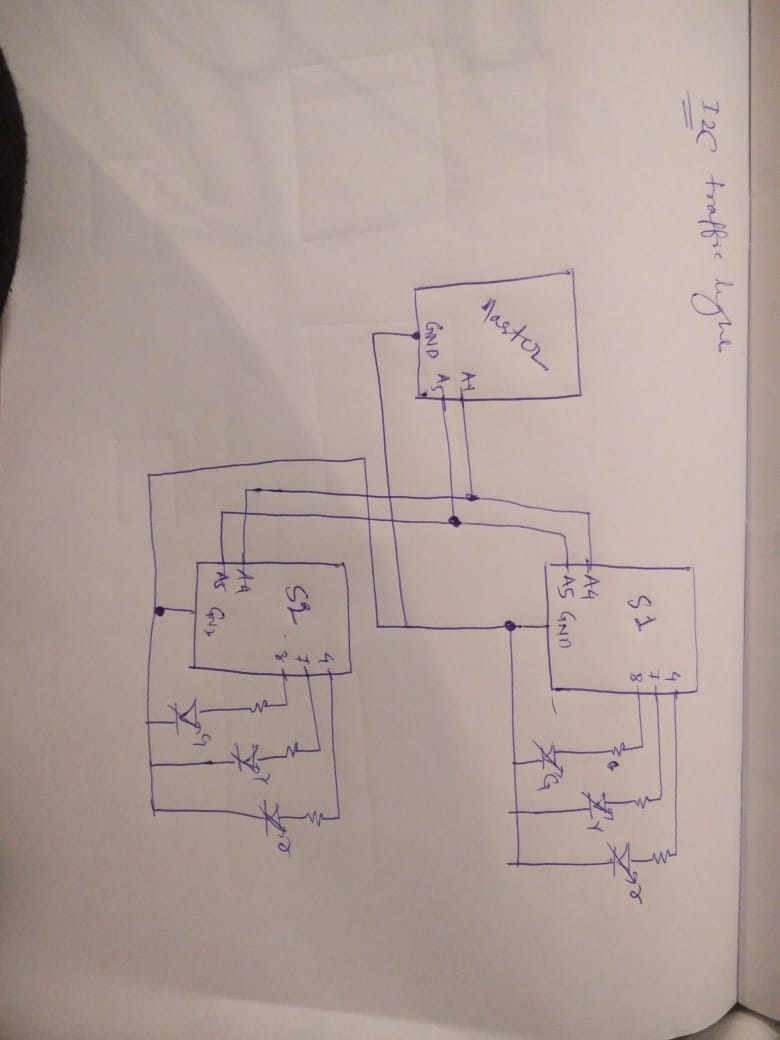 I2C traffic light
Master
GND
A5
A4
S1
A4
A5
GND
4
7
8
G
Y
r
S2
A4
A5
GND
4
7
8
G
Y
r